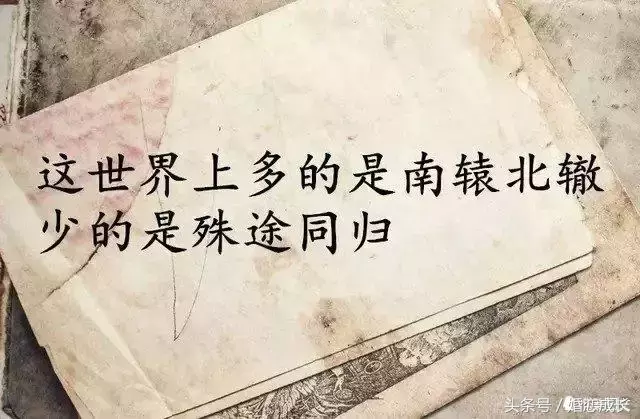 这世界上多的是南辕北辙
少的是殊途同归
头条号/婚恋成长